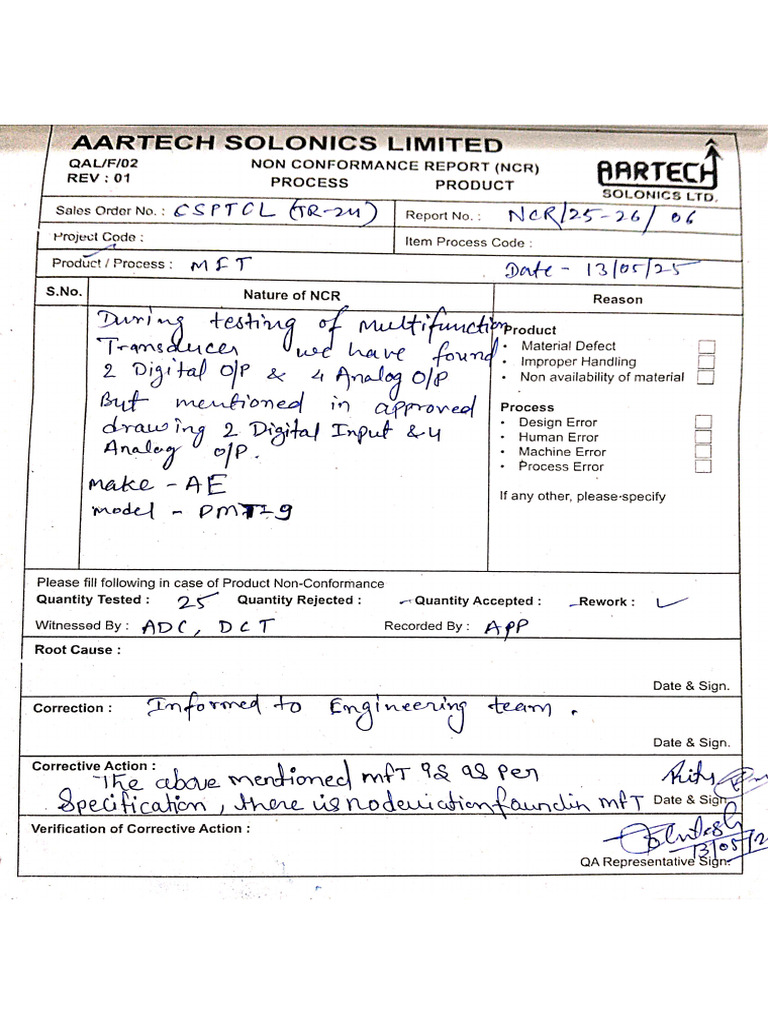 AARTECH SOLONICS LIMITED
QAL/F/02 NON CONFORMANCE REPORT (NCR)
REV : 01 PROCESS PRODUCT
AARTECH
SOLONICS LTD.
Sales Order No. : CSPTCL (TR-24) Report No. : NCR/25-26/ 06
Project Code : Item Process Code :
Product / Process : MFT Date - 13/05/25
S.No. Nature of NCR Reason
During testing of Multifunction
Transducer we have found
2 Digital O/P & 4 Analog O/P
But mentioned in approved
drawing 2 Digital Input & 4
Analog O/P.
Make - AE
Model - DMT-9
Product
• Material Defect
• Improper Handling
• Non availability of material
Process
• Design Error
• Human Error
• Machine Error
• Process Error
If any other, please-specify
Please fill following in case of Product Non-Conformance
Quantity Tested : 25 Quantity Rejected : - Quantity Accepted : - Rework : ✓
Witnessed By : ADC, DCT Recorded By : APP
Root Cause :
Date & Sign.
Correction : Informed to Engineering team.
Date & Sign.
Corrective Action :
The above mentioned MFT is as per
Specification, there is no deviation found in MFT Date & Sign
Verification of Corrective Action :
13/05/2
QA Representative Sign.